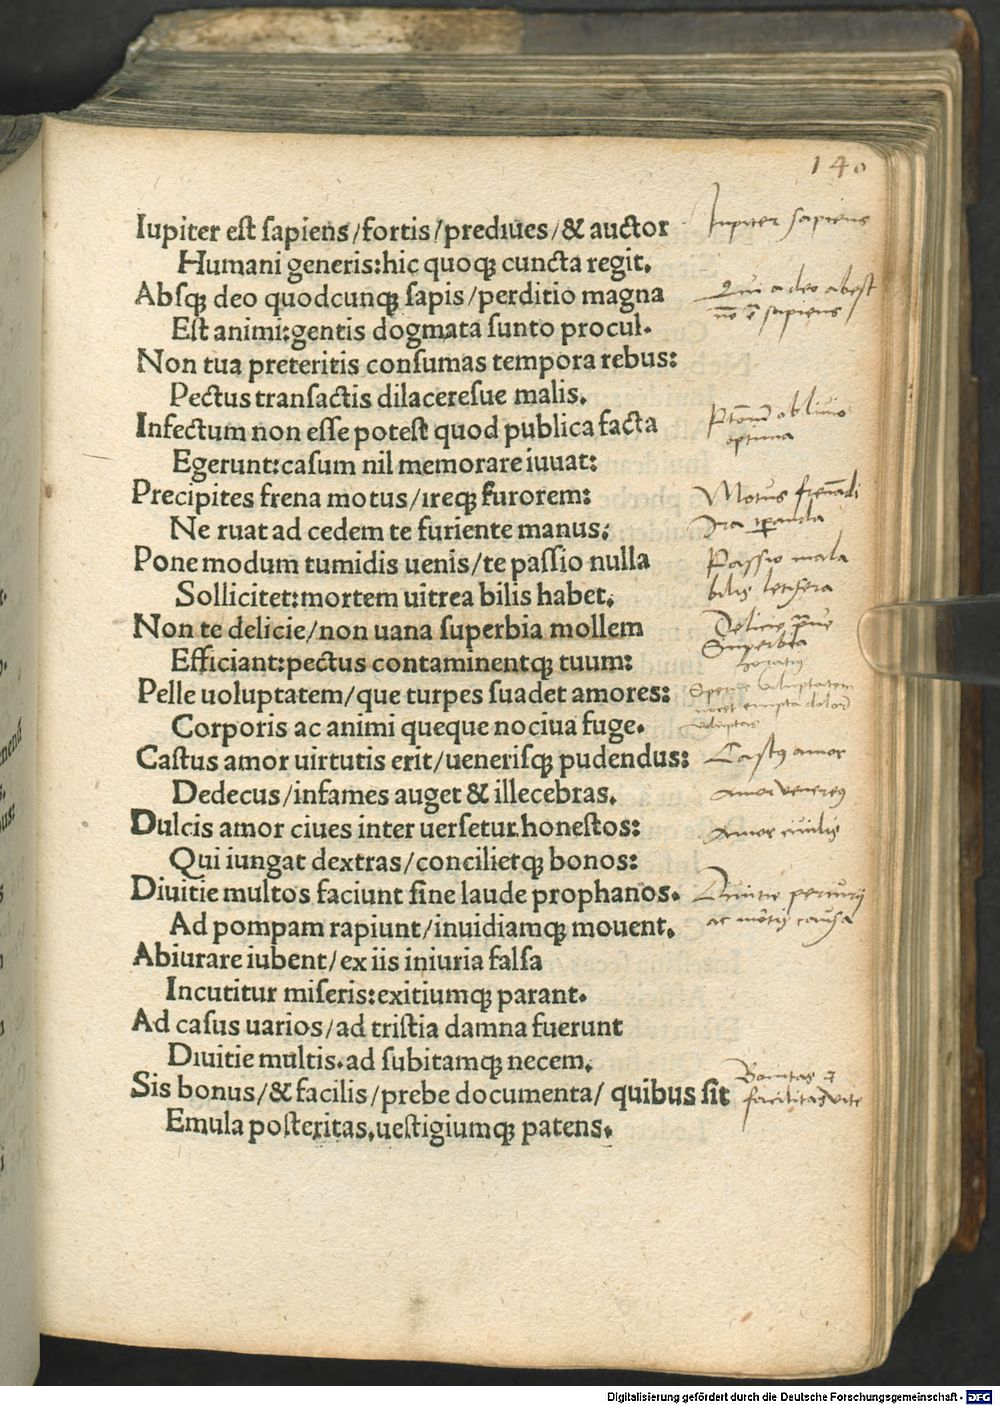 140
Iupiter est sapiens/fortis/prediues/& auctor
Humani generis:hic quoqꝫ cuncta regit.
Absqꝫ deo quodcunqꝫ sapis/perditio magna
Est animi:gentis dogmata sunto procul.
Non tua preteritis consumas tempora rebus:
Pectus transactis dilaceresue malis.
Infectum non esse potest quod publica facta
Egerunt:casum nil memorare iuuat:
Precipites frena motus/ireqꝫ furorem:
Ne ruat ad cedem te furiente manus:
Pone modum tumidis uenis/te passio nulla
Sollicitet:mortem uitrea bilis habet.
Non te delicie/non uana superbia mollem
Efficiant:pectus contaminentqꝫ tuum:
Pelle uoluptatem/que turpes suadet amores:
Corporis ac animi queque nociua fuge.
Castus amor uirtutis erit/uenerisqꝫ pudendus:
Dedecus/infames auget & illecebras.
Dulcis amor ciues inter uersetur honestos:
Qui iungat dextras/concilietqꝫ bonos:
Diuitie multos faciunt sine laude prophanos.
Ad pompam rapiunt/inuidiamqꝫ mouent.
Abiurare iubent/ex iis iniuria falsa
Incutitur miseris:exitiumqꝫ parant.
Ad casus uarios/ad tristia damna fuerunt
Diuitie multis.ad subitamqꝫ necem.
Sis bonus/& facilis/prebe documenta/ quibus sit
Emula posteritas.uestigiumqꝫ patens.
Iupiter sapiens
Qui a deo abest
nō ē sapiens
obliuio
optima
Motus frenādi
Ira
Passio mala
bilis letifera
Delicie
Superbia
horatius
Sperne voluptatem
nocet empta dolore
voluptas
Castꝰ amor
Amor venereꝰ
Amor ciuilis
Diuitie periurij
ac mortis causa
Bonitas
facilitas vite
Digitalisierung gefördert durch die Deutsche Forschungsgemeinschaft - DFG